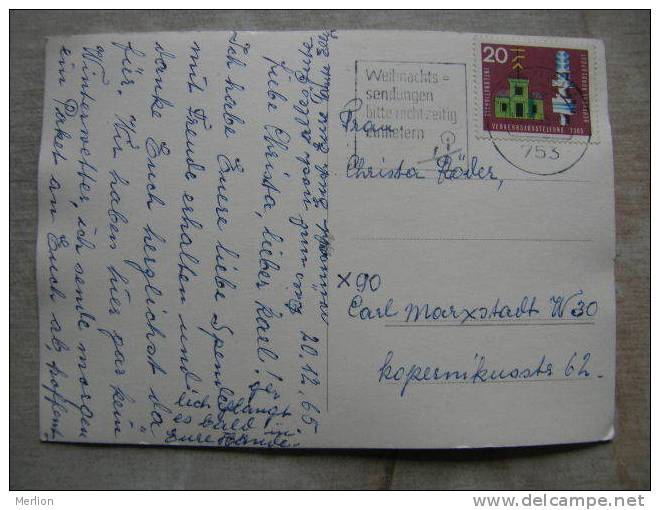 20.12.65
Liebe Christa, lieber Karl!
Ich habe Euere liebe Spende
mit Freude erhalten und
danke Euch herzlichst da
für. Wir haben hier gar kein
Winterwetter, ich sende morgen
ein Paket an Euch ab, hoffent
lich gelangt
es bald in
Eure Hände.
Weihnachts=
sendungen
bitte rechtzeitig
einliefern
20
DEUTSCHE BUNDESPOST
VERKEHRSAUSSTELLUNG 1965
753
Frau
Christa Röder,
X 90
Carl Marxstadt W 30
Kopernikusstr 62.
Merlion
www.delcampe.net